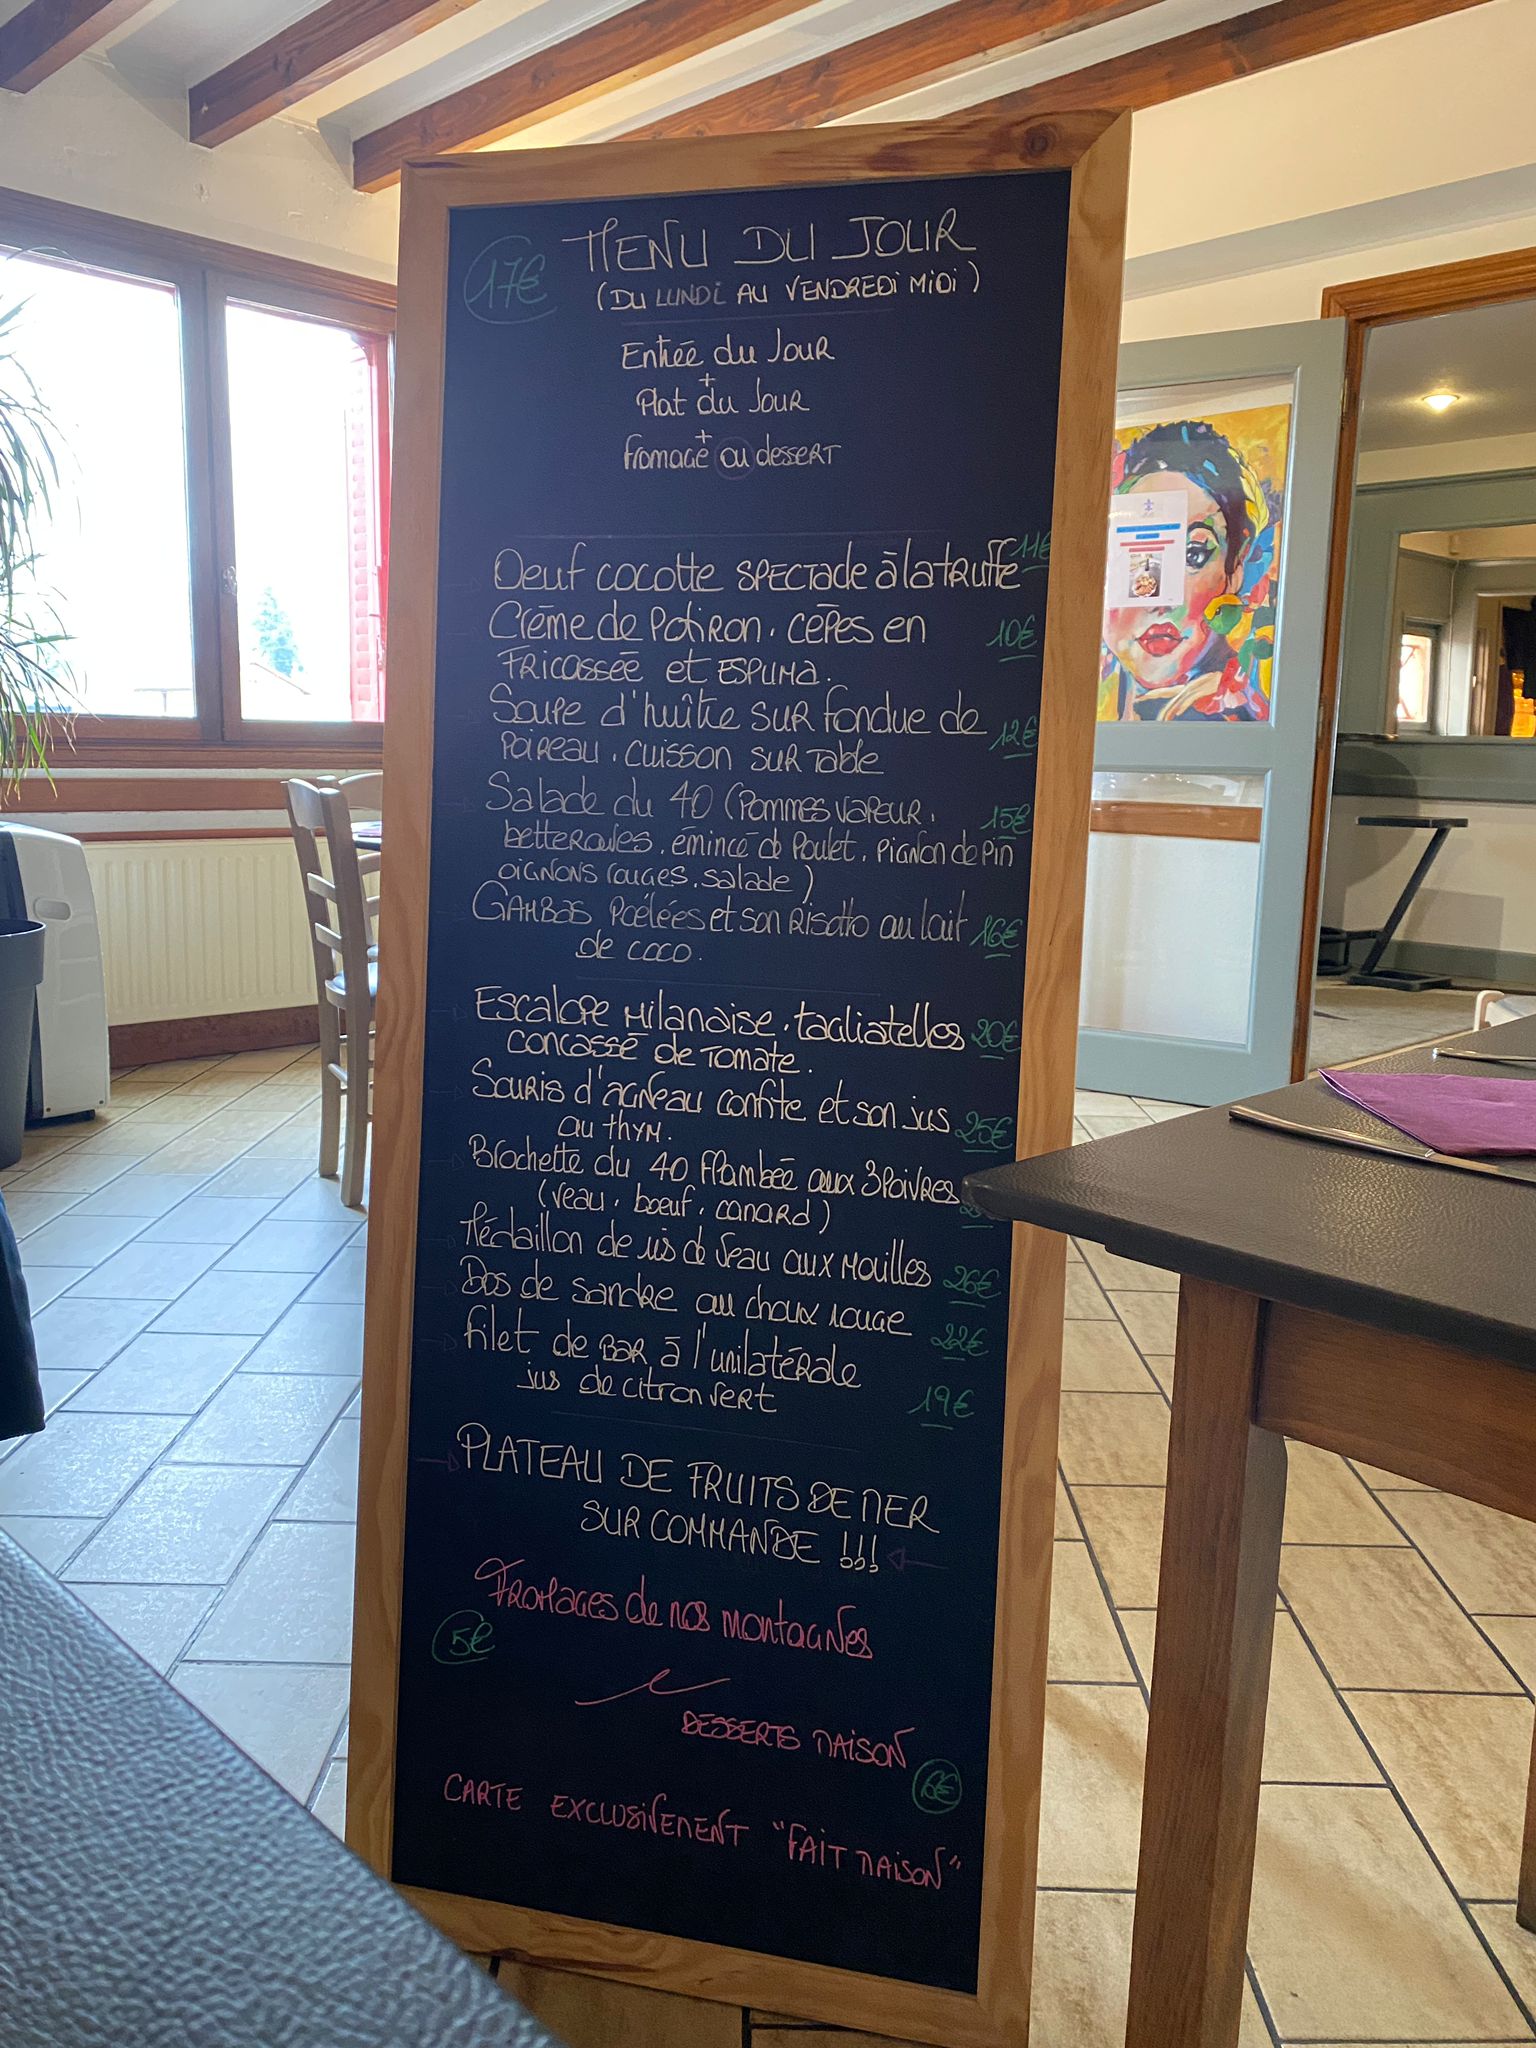 17€ MENU DU JOUR
(DU LUNDI AU VENDREDI MIDI)
Entrée du Jour
+
Plat du Jour
+
fromage ou dessert
Oeuf cocotte SPECTacle à la truffe 11€
Crème de Potiron. cèpes en 10€
Fricassée et ESPUMA.
Soupe d'huître sur fondue de 12€
Poireau. cuisson sur Table
Salade du 40 (Pommes vapeur. 15€
betteraves. émincé de Poulet. Pignon de Pin
oignons rouges. salade)
GAMBAS Poélées et son Risotto au lait 16€
de coco.
Escalope Milanaise. tagliatelles 20€
concassé de Tomate.
Souris d'agneau confite et son jus 25€
au thym.
Brochette du 40 flambée aux 3 Poivres
(veau. boeuf. canard)
Médaillon de ris de Veau aux Morilles 26€
Dos de sandre au choux rouge 22€
filet de BAR à l'unilatérale
jus de citron vert 19€
PLATEAU DE FRUITS DE MER
SUR COMMANDE !!!
FROMAGES de nos montagnes
5€
DESSERTS MAISON
6€
CARTE EXCLUSIVEMENT "FAIT MAISON"